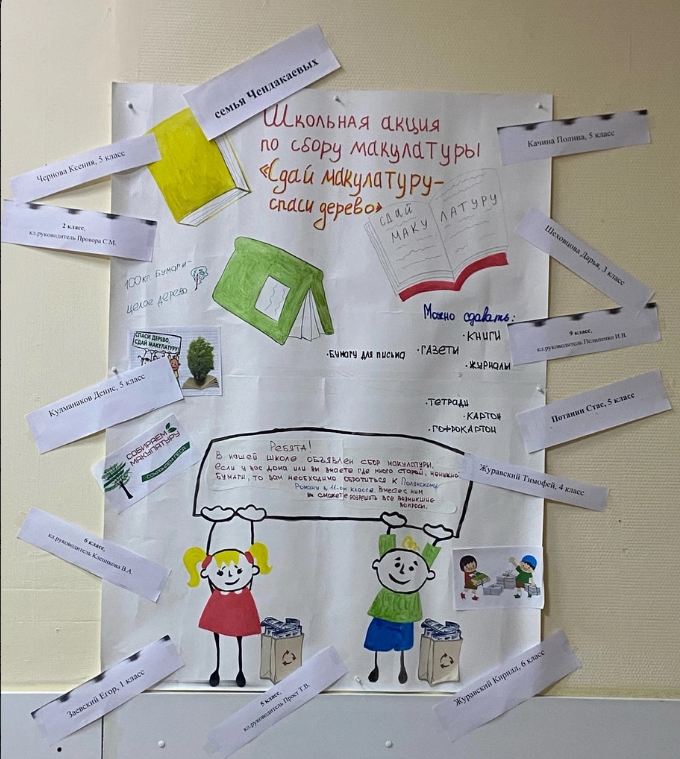 семья Чендакаевых
Школьная акция
по сбору макулатуры
«Сдай макулатуру-
спаси дерево»
Чернова Ксения, 5 класс
Качина Полина, 5 класс
2 класс,
кл.руководитель Провора С.М.
СДАЙ
МАКУЛАТУРУ
Шеховцова Дарья, 3 класс
100кг бумаги-
целое дерево
Можно сдавать:
·КНИГИ
·БУМАГУ ДЛЯ ПИСЬМА
·ГАЗЕТИ
·ЖУРНАЛЫ
9 класс,
кл.руководитель
СПАСИ ДЕРЕВО,
СДАЙ МАКУЛАТУРУ
Кудманаков Денис, 5 класс
·ТЕТРАДИ
·КАРТОН
·ГОФРОКАРТОН
Потанин Стас, 5 класс
СОБИРАЕМ
МАКУЛАТУРУ
Ребята!
В нашей школе объявлен сбор макулатуры.
Если у вас дома или вы знаете где много старой, ненужной
бумаги, то вам необходимо обратиться к Полянскому
Роману в 11-ом классе. Вместе с ним
вы сможете разрешить все возникшие
вопросы.
Журавский Тимофей, 4 класс
6 класс,
кл.руководитель Клешнова В.А.
Заевский Егор, 1 класс
8 класс,
кл.руководитель Прост Т.В.
Журавский Кирилл, 6 класс